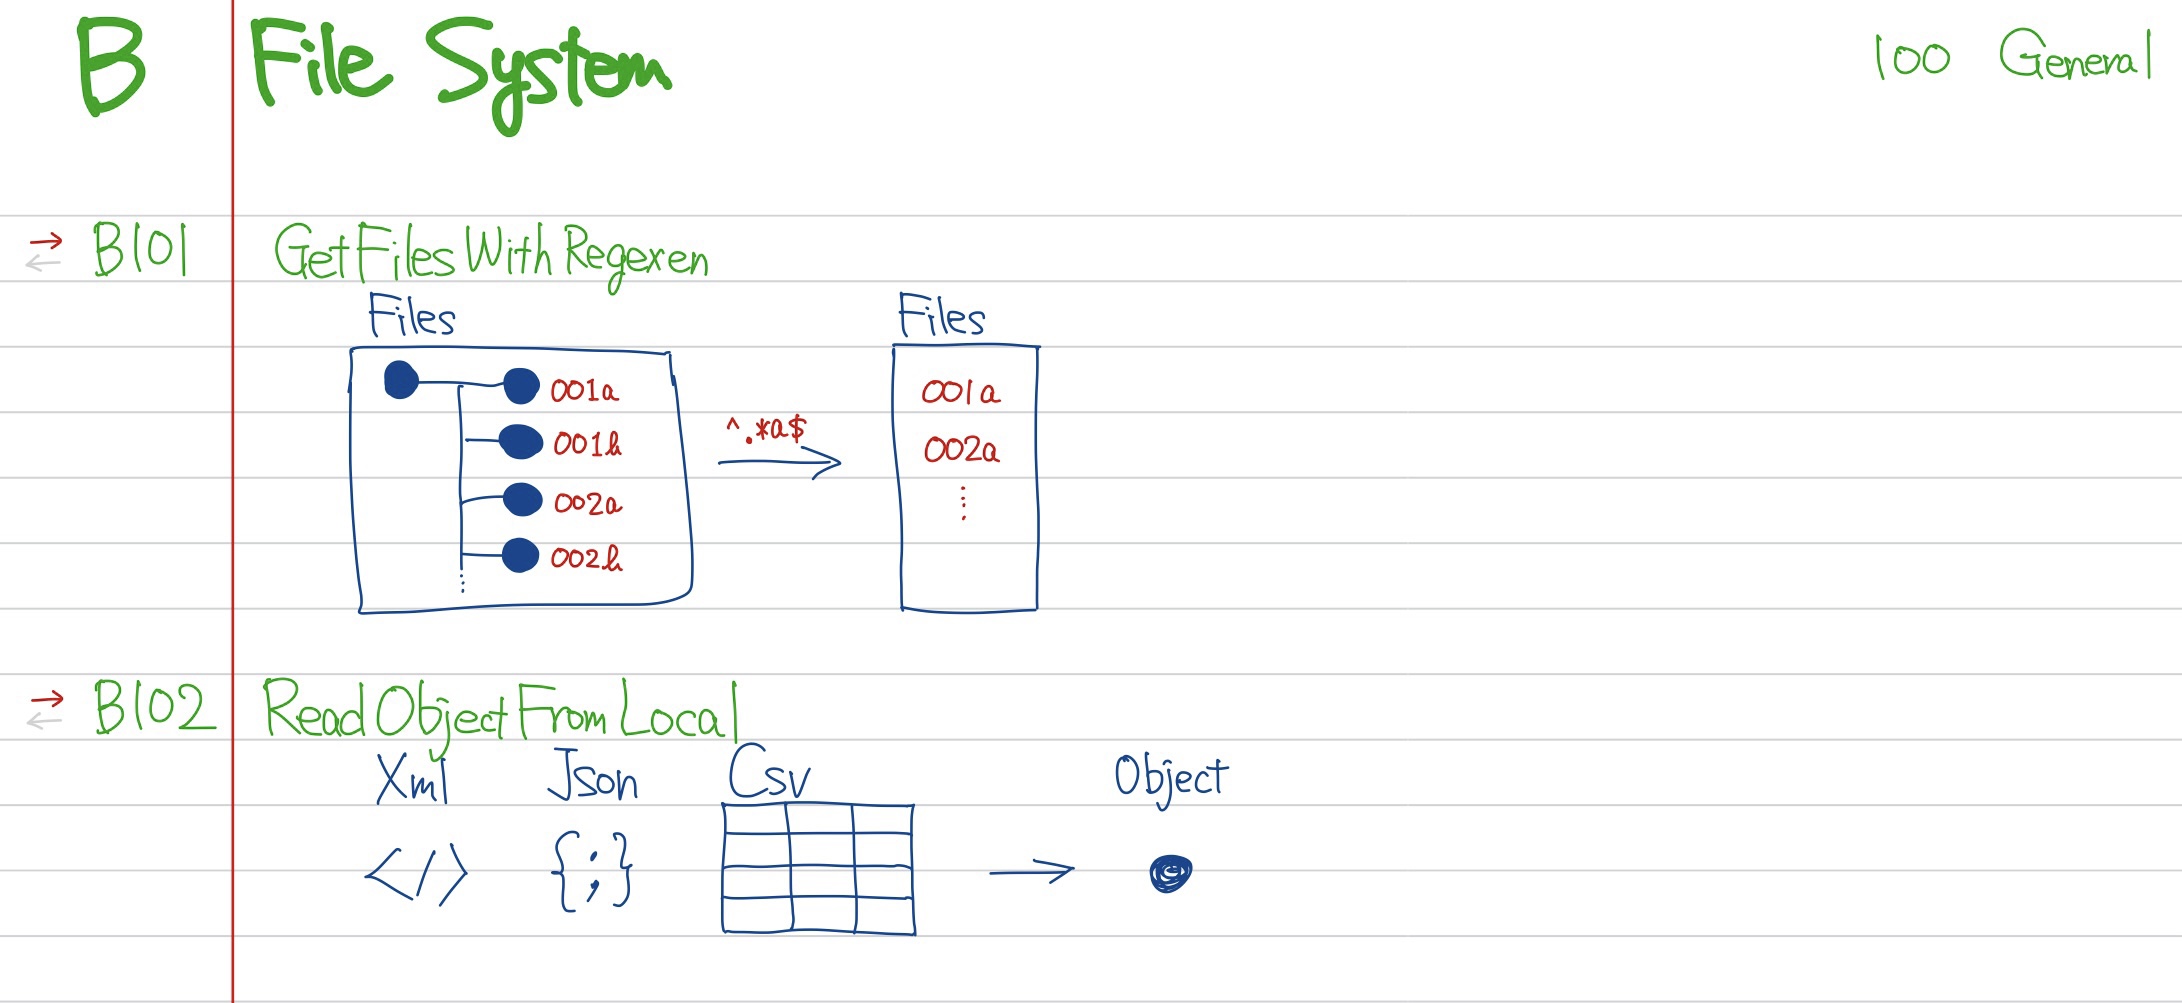 B File System 100 General
→ B101 GetFilesWithRegexen
←
Files Files
001a 001a
001b ^.*a$ 002a
002a
002b
→ B102 ReadObjectFromLocal
←
Xml Json Csv Object
</> {;}